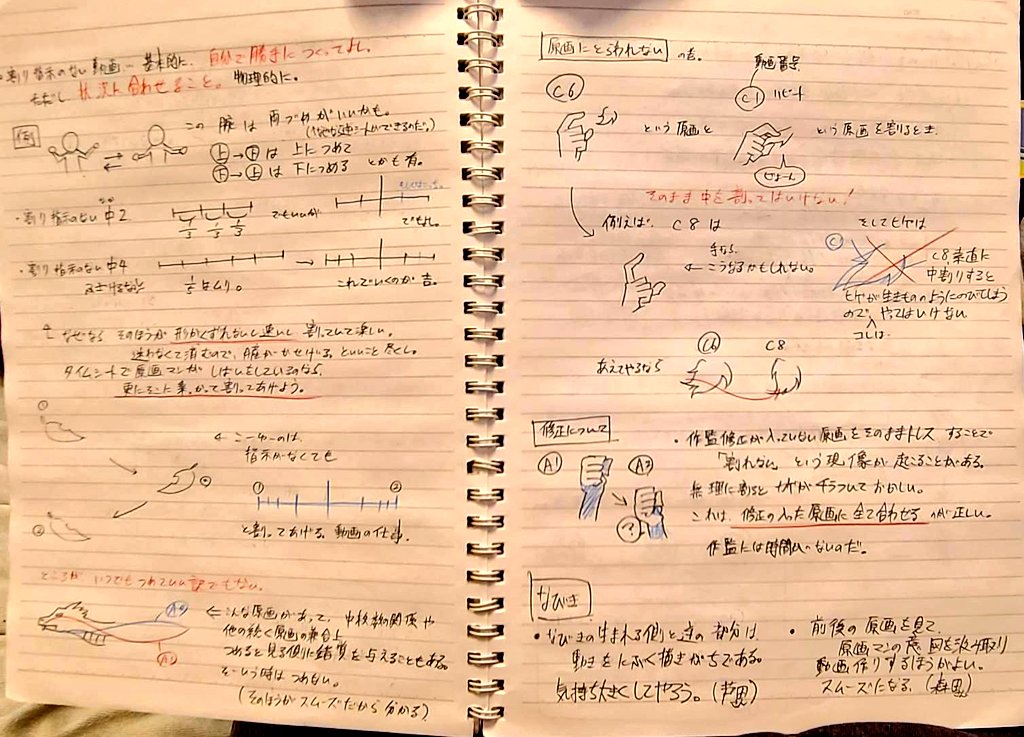 ・割り指示のない動画… 基本的に、自分で勝手につくってよし。
ただし 状況に合わせること。物理的に。
例
この 腕は 両づめがいいかも。
上→下は 上につめて
下→上は 下につめる とかも有。
・割り指示のない中2
1/3 1/3 1/3
でもいいが
でもよし。
・割り指示のない中4
1/5 なんり。
これでいくのが 吉。
なぜなら そのほうが 形がくずれないし速いし 割っていて楽しい。
迷わなくて済むので、
タイムシートで原画マンが しはいをしているのなら、
更にそこに乗っかって割ってあげよう。
① ② ③
← こーゆーのは、
指示がなくても
① ②
と割ってあげる。動画の仕事。
ところが いつでもつめていい訳でもない。
← こんな原画があって、中枚数の関係や
他の続く原画の兼合上、
つめると見る側に錯覚を与えることもある。
そーいう時は つめない。
(そのほうが スムーズだから 分かる)
原画にとらわれない の巻。
動画番号
C6
C1 リピート
という原画と
という原画を割るとき、
ビョーん
そのまま中を割ってはいけない!
例えば、C8は
手なら、
← こうなるかもしれない。
そしてヒゲは
C8 素直に
中割りすると
ヒゲが生きもののようにのびてしまう
ので、やってはいけない
コレは
あえてやるなら
C6 C8
修正について
・作監修正が入っていない原画をそのままトレスすることで
「割れない」という現像が起こることがある。
A1 A3
?
無理に割ると ナカがチラついておかしい。
これは、修正の入った原画に全て合わせるのが正しい。
作監には時間がないのだ。
なびき
・なびきの生まれる側と逆の部分は、
動きをにぶく描きがちである。
気持ち大きくしてやろう。
・前後の原画を見て、
原画マンの意図を汲み取り
動画作りするほうがよい。
スムーズになる。(森田)